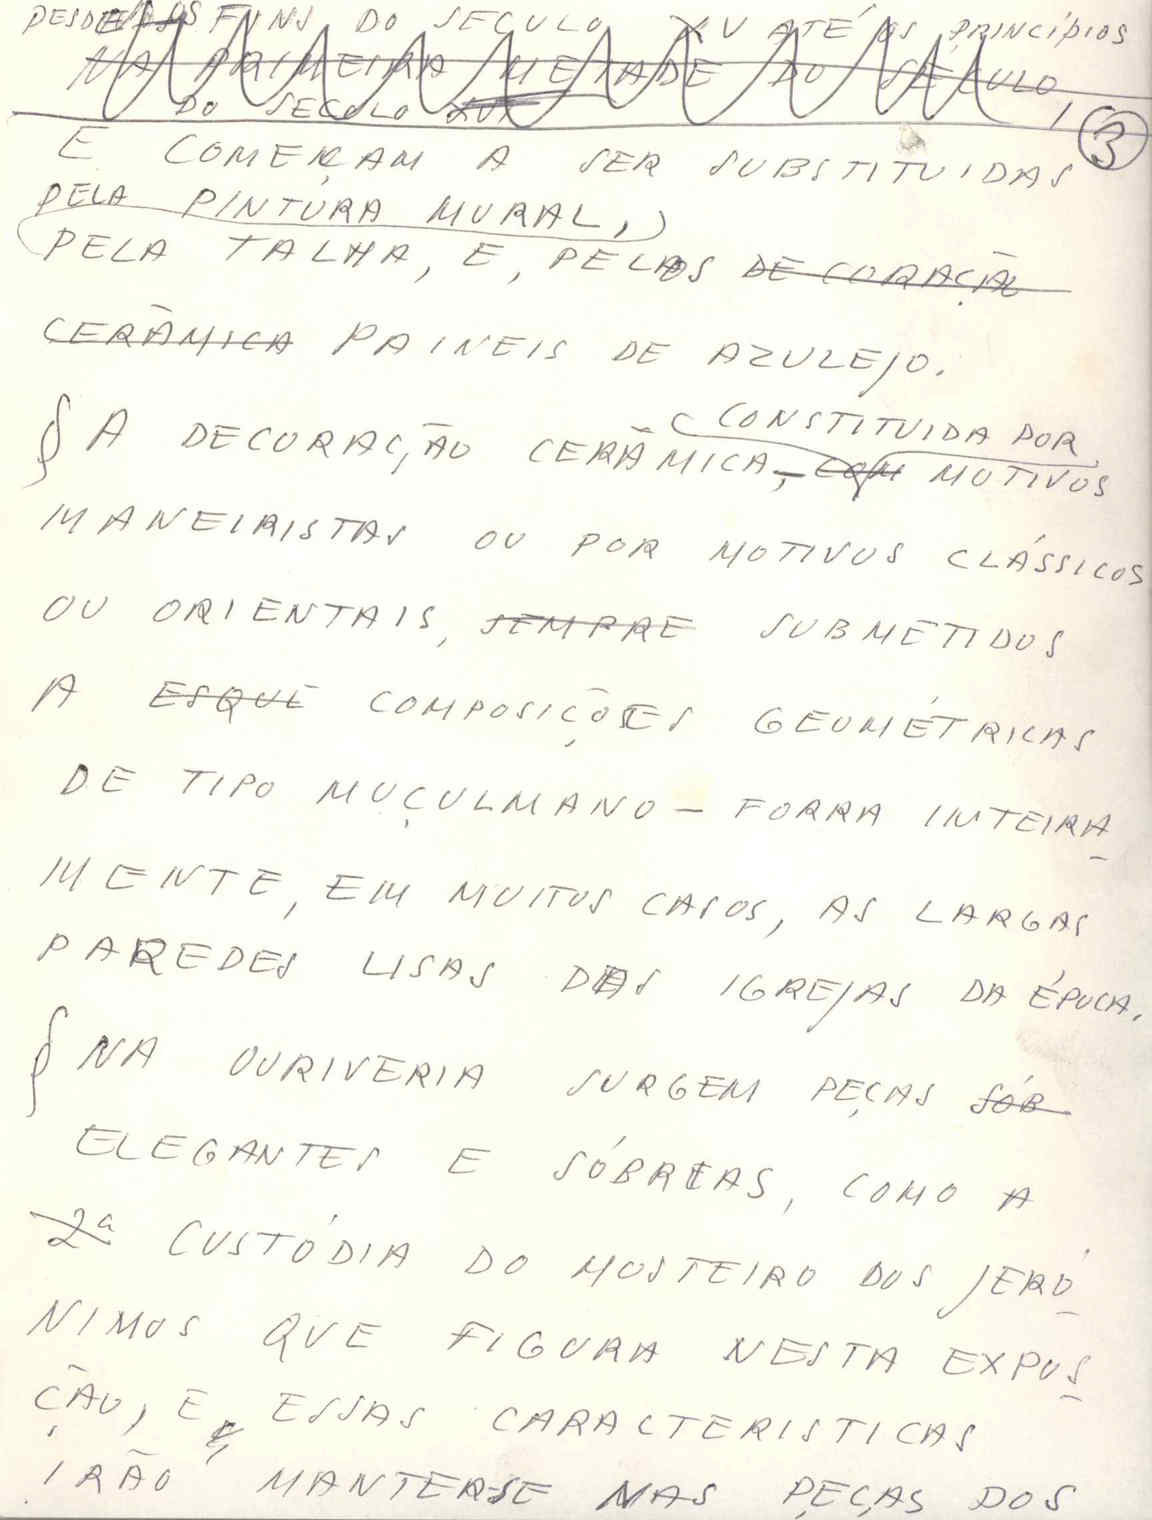 DESDE OS FINS DO SECULO XV ATÉ OS PRINCÍPIOS
NA PRIMEIRA METADE DO SECULO
DO SECULO XVI
3
E COMEÇAM A SER SUBSTITUIDAS
PELA PINTURA MURAL,
PELA TALHA, E, PELOS DE CORAÇÃO
CERÂMICA PAINEIS DE AZULEJO.
§ A DECORAÇÃO CERÂMICA, – COM MOTIVOS
CONSTITUIDA POR
MANEIRISTAS OU POR MOTIVOS CLÁSSICOS
OU ORIENTAIS, SEMPRE SUBMETIDOS
A ESQUE COMPOSIÇÕES GEOMÉTRICAS
DE TIPO MUÇULMANO – FORRA INTEIRA
MENTE, EM MUITOS CASOS, AS LARGAS
PAREDES LISAS DAS IGREJAS DA ÉPOCA.
§ NA OURIVERIA SURGEM PEÇAS SÓB
ELEGANTES E SÓBRIAS, COMO A
2ª CUSTÓDIA DO MOSTEIRO DOS JERÓ
NIMOS QUE FIGURA NESTA EXPOS
ÇÃO, E, ESSAS CARACTERISTICAS
IRÃO MANTER-SE NAS PEÇAS DOS